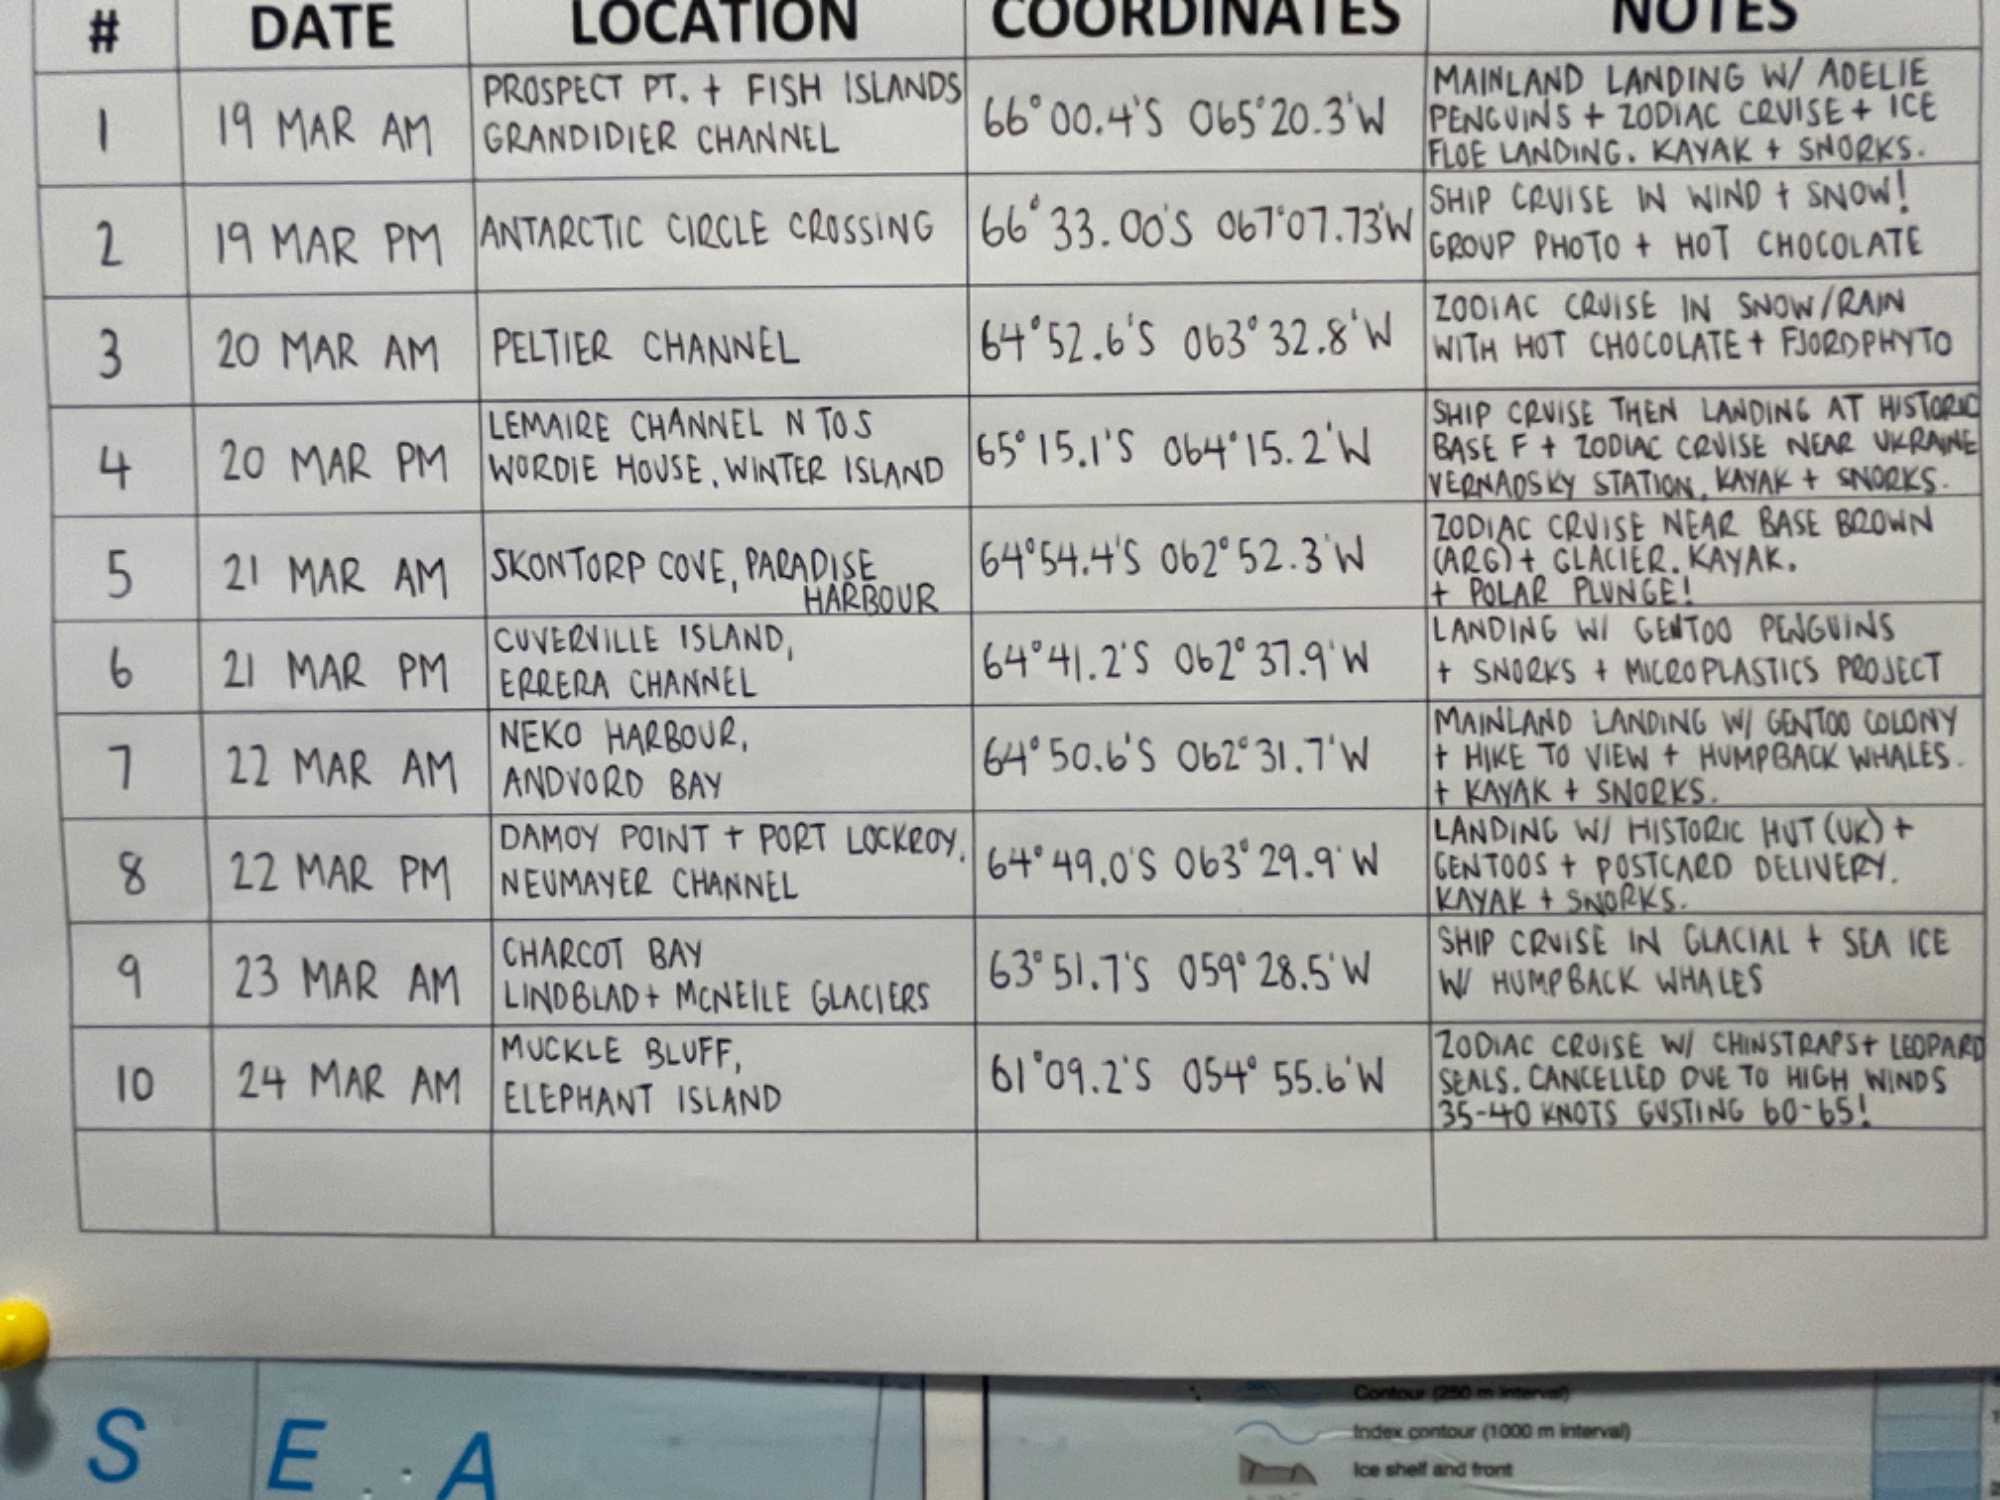 # DATE LOCATION COORDINATES NOTES
1 19 MAR AM PROSPECT PT. + FISH ISLANDS
GRANDIDIER CHANNEL 66°00.4'S 065°20.3'W MAINLAND LANDING W/ ADELIE
PENGUINS + ZODIAC CRUISE + ICE
FLOE LANDING. KAYAK + SNORKS.
2 19 MAR PM ANTARCTIC CIRCLE CROSSING 66°33.00'S 067°07.73'W SHIP CRUISE IN WIND + SNOW!
GROUP PHOTO + HOT CHOCOLATE
3 20 MAR AM PELTIER CHANNEL 64°52.6'S 063°32.8'W ZODIAC CRUISE IN SNOW/RAIN
WITH HOT CHOCOLATE + FJORDPHYTO
4 20 MAR PM LEMAIRE CHANNEL N TO S
WORDIE HOUSE, WINTER ISLAND 65°15.1'S 064°15.2'W SHIP CRUISE THEN LANDING AT HISTORIC
BASE F + ZODIAC CRUISE NEAR UKRAINE
VERNADSKY STATION. KAYAK + SNORKS.
5 21 MAR AM SKONTORP COVE, PARADISE
HARBOUR 64°54.4'S 062°52.3'W ZODIAC CRUISE NEAR BASE BROWN
(ARG) + GLACIER. KAYAK.
+ POLAR PLUNGE!
6 21 MAR PM CUVERVILLE ISLAND,
ERRERA CHANNEL 64°41.2'S 062°37.9'W LANDING W/ GENTOO PENGUINS
+ SNORKS + MICROPLASTICS PROJECT
7 22 MAR AM NEKO HARBOUR,
ANDVORD BAY 64°50.6'S 062°31.7'W MAINLAND LANDING W/ GENTOO COLONY
+ HIKE TO VIEW + HUMPBACK WHALES.
+ KAYAK + SNORKS.
8 22 MAR PM DAMOY POINT + PORT LOCKROY,
NEUMAYER CHANNEL 64°49.0'S 063°29.9'W LANDING W/ HISTORIC HUT (UK) +
GENTOOS + POSTCARD DELIVERY.
KAYAK + SNORKS.
9 23 MAR AM CHARCOT BAY
LINDBLAD + MCNEILE GLACIERS 63°51.7'S 059°28.5'W SHIP CRUISE IN GLACIAL + SEA ICE
W/ HUMPBACK WHALES
10 24 MAR AM MUCKLE BLUFF,
ELEPHANT ISLAND 61°09.2'S 054°55.6'W ZODIAC CRUISE W/ CHINSTRAPS + LEOPARD
SEALS. CANCELLED DUE TO HIGH WINDS
35-40 KNOTS GUSTING 60-65!
S E A
Contour (250 m interval)
Index contour (1000 m interval)
Ice shelf and front